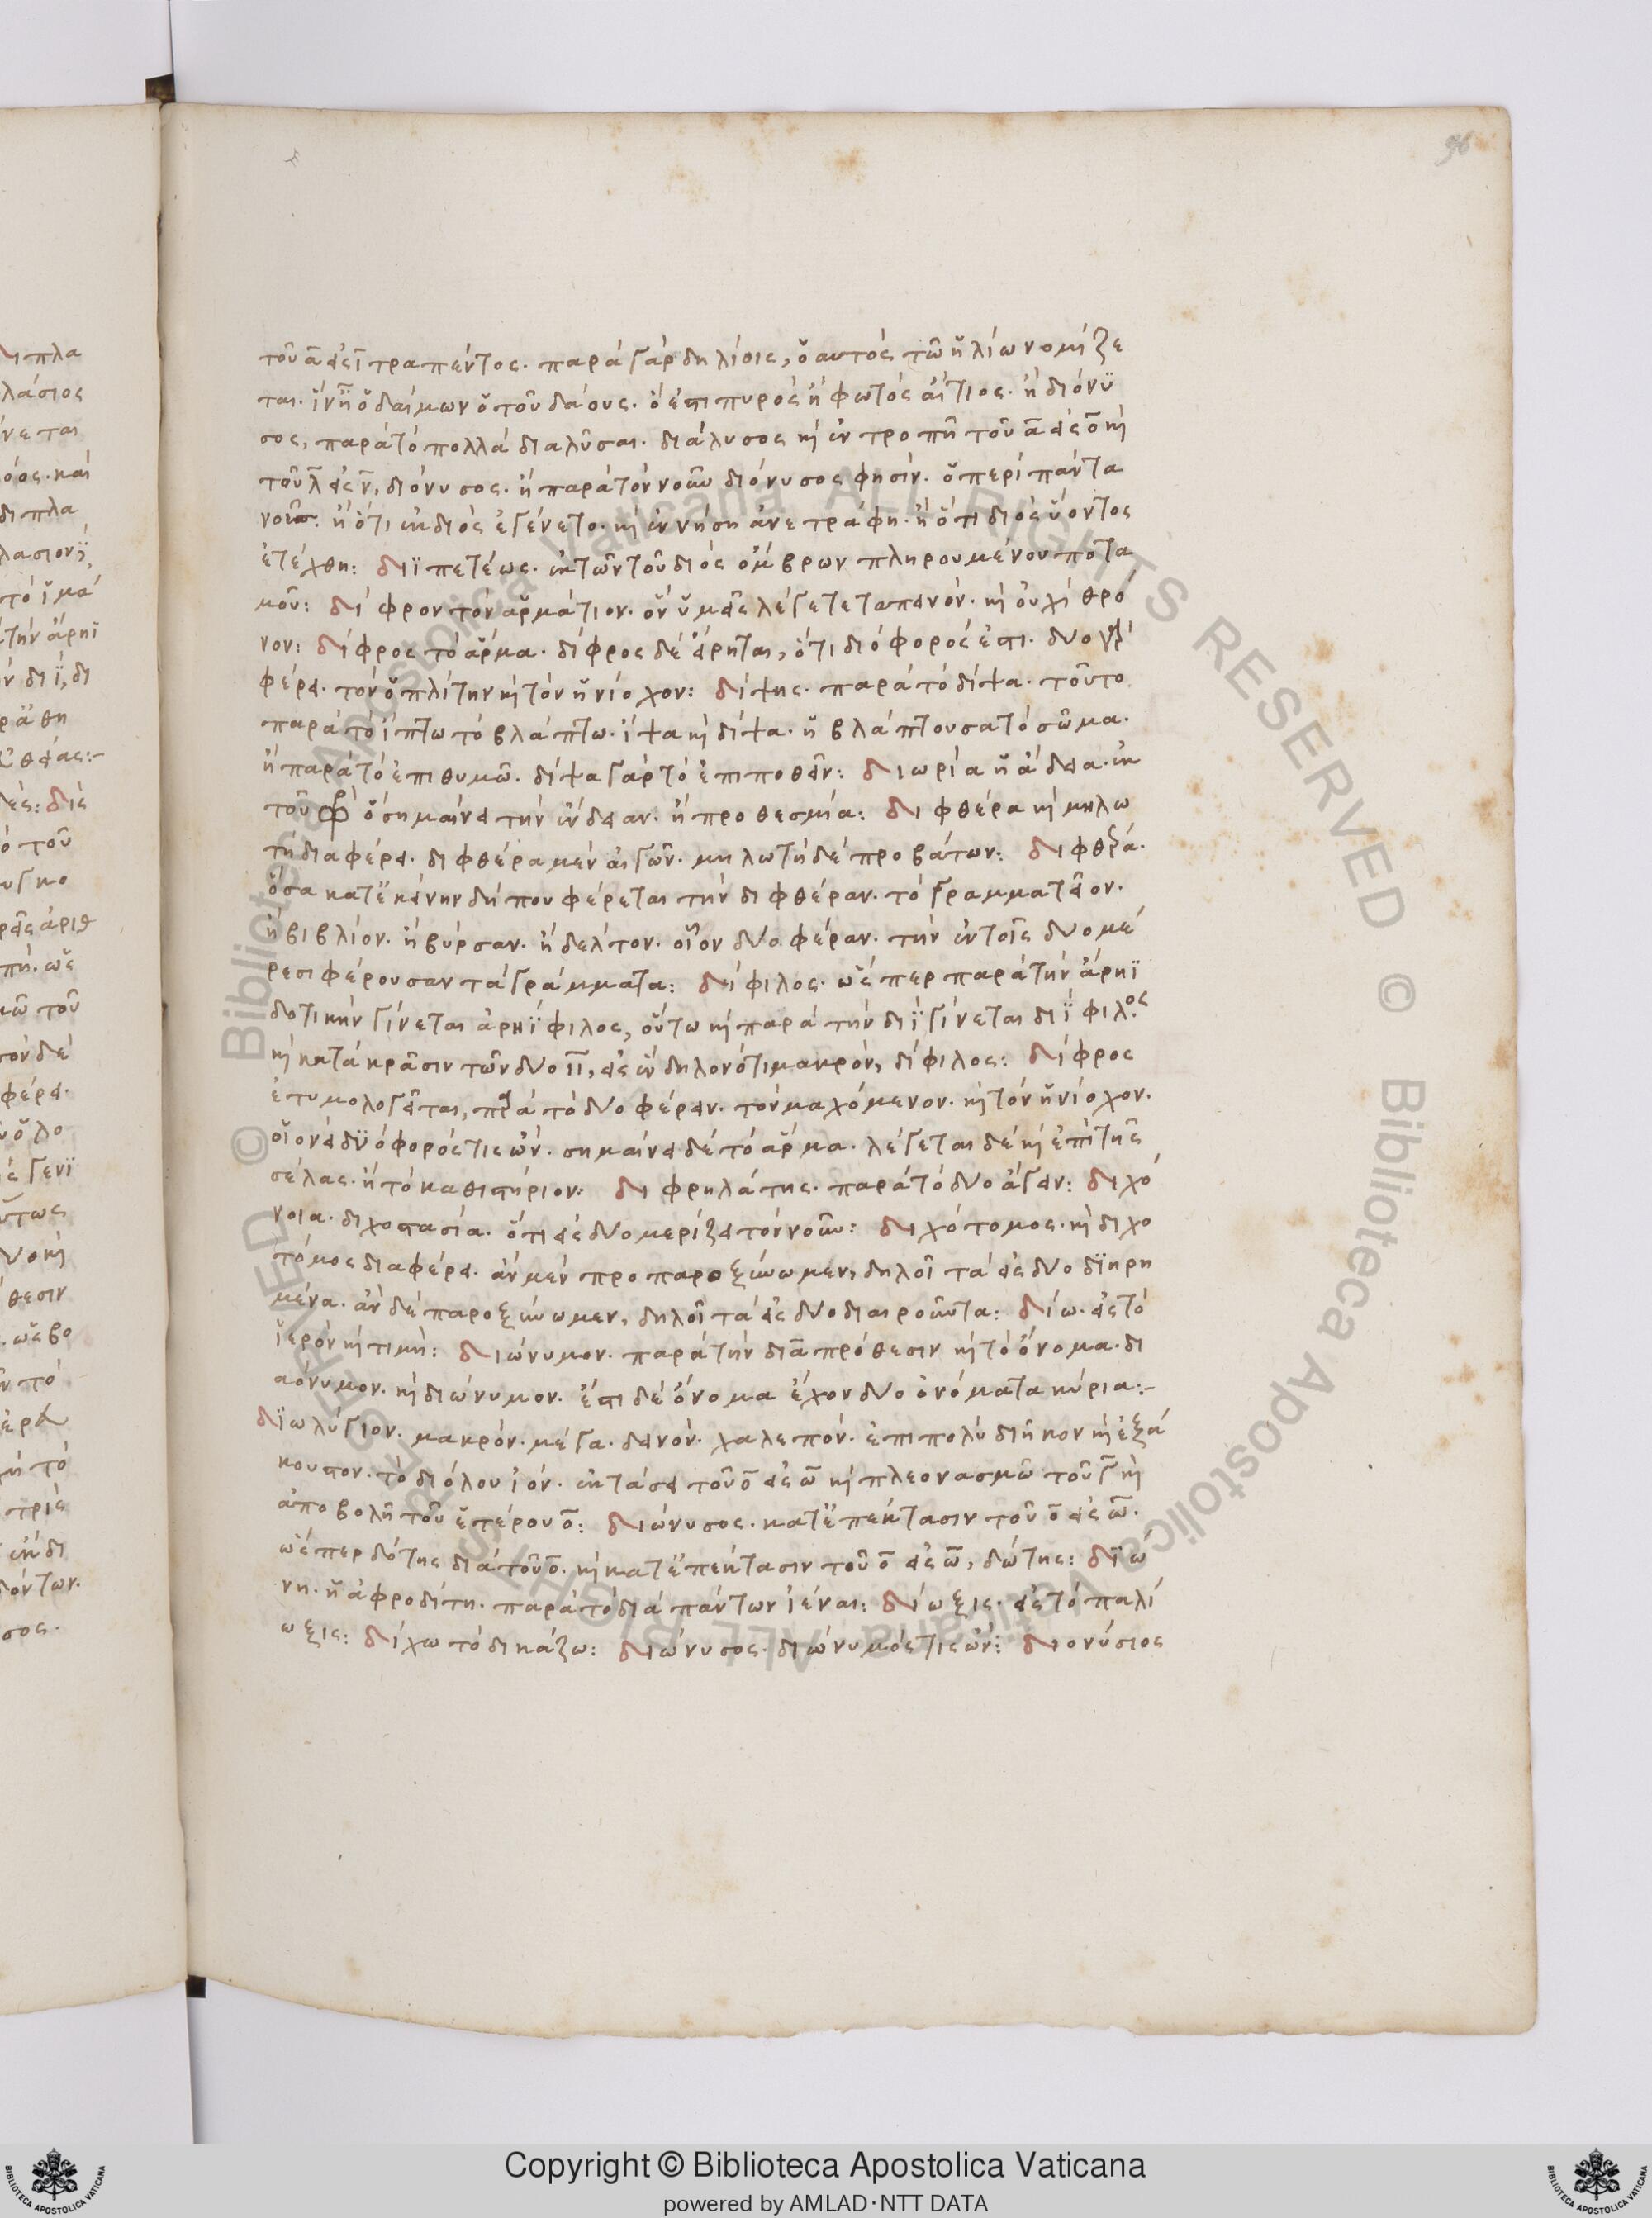 96
τοῦ α εἰς ῑ τραπέντος. παρὰ γὰρ δηλίοις, ὁ αυτὸς τῶ ἡλίω νομίζε
ται. ἵν ἦ ὁ δαίμων ὁ τοῦ δάους. ὅ ἐστι πυρὸς ἢ φωτὸς αἴτιος. ἢ διόνυ
σος, παρὰ τὸ πολλὰ διαλῦσαι. διάλυσος κὶ ἐν τροπῆ τοῦ ᾱ εἰς ο̄ κὶ
τοῦ λ̄ εἰς ν̄, διόνυσος. ἢ παρὰ τὸν νοῦν διόνυσος φησὶν. ὁ περὶ πάντα
νοῦς. ἢ ὅτι ἐκ διὸς ἐγένετο. κὶ ἐν νήση ἀνετράφη. ἢ ὅτι διὸς ὕοντος
ἐτέχθη: διϊπετέως. ἐκ τῶν τοῦ διὸς ὄμβρων πληρουμένου ποτα
μοῦ: δίφρον τὸν ἁρμάτιον. ὃν ὑμεῖς λέγετε ταπεινόν. κὶ οὐχὶ θρό
νον: δίφρος τὸ ἅρμα. δίφρος δὲ εἴρηται, ὅτι διόφορός ἐστι. δύο γὰρ
φέρει. τὸν ὁπλίτην κὶ τὸν ἡνίοχον: δίψης. παρὰ τὸ δίψα. τοῦτο
παρὰ τὸ ἵπτω τὸ βλάπτω. ἵψα κὶ δίψα. ἡ βλάπτουσα τὸ σῶμα.
ἢ παρὰ τὸ ἐπιθυμῶ. δίψα γὰρ τὸ ἐπιποθεῖν: διωρία ἡ ἄδεια. ἐκ
τοῦ ὅ σημαίνει τὴν ἔνδειαν. ἢ προθεσμία: διφθέρα κὶ μηλω
τὴ διαφέρει. διφθέρα μὲν αἰγῶν. μηλωτὴ δὲ προβάτων: διφθέρα.
ὅσα κατ' ἐκείνην δήπου φέρεται τὴν διφθέραν. τὸ γραμματεῖον.
ἢ βιβλίον. ἢ βύρσαν. ἢ δελτον. οἷον δυοφέραν. τὴν ἐν τοῖς δυο μέ
ρεσι φέρουσαν τὰ γράμματα: δίφιλος. ὥσπερ παρὰ τὴν ἄρηϊ
δοτικὴν γίνεται ἀρηΐφιλος, οὕτω κὶ παρὰ τὴν διῒ γίνεται διΐφιλος
κὶ κατὰ κρᾶσιν τῶν δυο ῑῑ, εἰς ἓν δηλονότι μακρὸν, δίφιλος: δίφρος
ἐτυμολογεῖται, παρὰ τὸ δυο φέρειν. τὸν μαχόμενον. κὶ τὸν ἡνίοχον.
οἱονεὶ δϋόφορός τις ὤν. σημαίνει δὲ τὸ ἅρμα. λέγεται δὲ κὶ ἐπὶ τῆς
σέλας. ἢ τὸ καθιστήριον: διφρηλάτης. παρὰ τὸ δυο ἄγειν: διχό
νοια. διχοστασία. ὅτι εἰς δυο μερίζει τὸν νοῦν: διχότομος. κὶ διχο
τόμος διαφέρει. ἂν μὲν προπαροξύνωμεν, δηλοῖ τὰ εἰς δυο δϊηρη
μένα. ἂν δὲ παροξύνωμεν, δηλοῖ τὰ εἰς δυο διαιροῦντα: δίω. εἰς τὸ
ἱερὸν κὶ τιμή: διώνυμον. παρὰ τὴν διᾱ πρόθεσιν κὶ τὸ ὄνομα. δι
αόνυμον. κὶ διώνυμον. ἔστι δὲ ὄνομα ἔχον δυο ὀνόματα κύρια:-
δϊωλύγιον. μακρόν. μέγα. δεινόν. χαλεπόν. ἐπιπολὺ διῆκον κὶ ἐξά
κουστον. τὸ διόλου ἰόν. ἐκτάσει τοῦ ο̄ εἰς ω̄ κὶ πλεονασμῶ τοῦ γ̄ κὶ
ἀποβολῆ τοῦ ἑτέρου ο̄: διώνυσος. κατ' ἐπέκτασιν τοῦ ο̄ εἰς ω̄.
ὥσπερ δότης διὰ τοῦ ο̄. κὶ κατ' ἐπέκτασιν τοῦ ο̄ εἰς ω̄, δώτης: δϊώ
νη. ἡ ἀφροδίτη. παρὰ τὸ διὰ πάντων ἰέναι: δίωξις. εἰς τὸ παλί
ωξις: δίχω τὸ δικάζω: διώνυσος. διώνυμός τις ὤν: διονύσιος
Copyright © Biblioteca Apostolica Vaticana
powered by AMLAD·NTT DATA